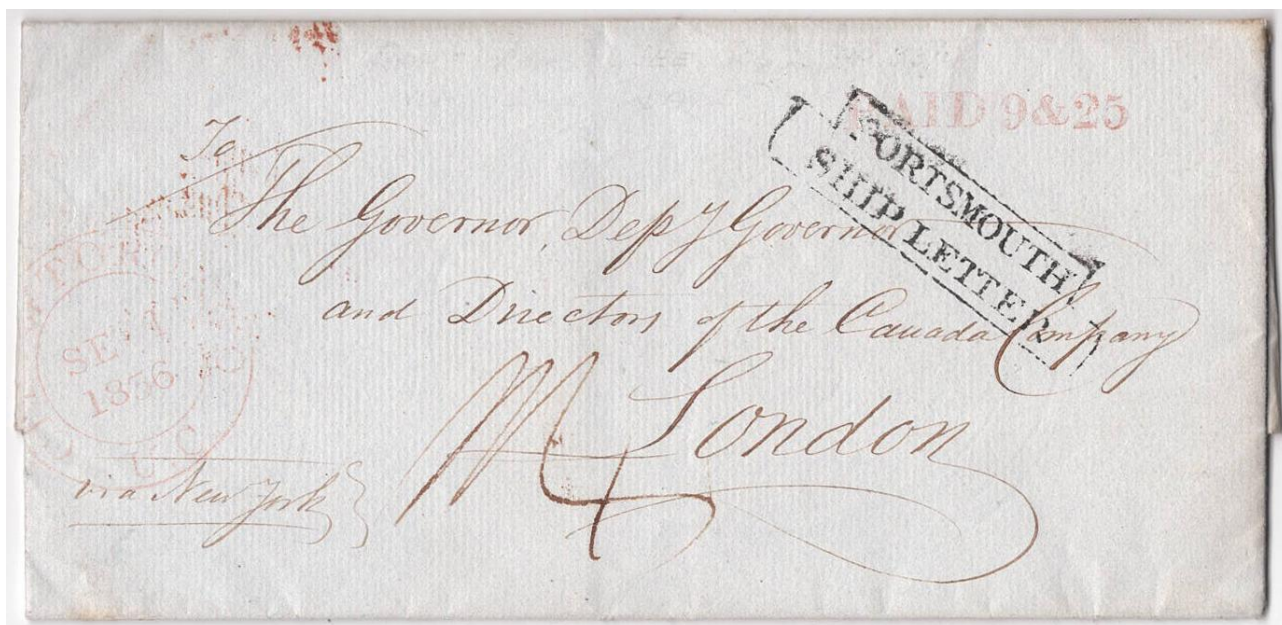 PAID 9&25
PORTSMOUTH
SHIP LETTER
To
The Governor, Depy Governor
and Directors of the Canada Company
London
SE 1
1836
U C
via New York